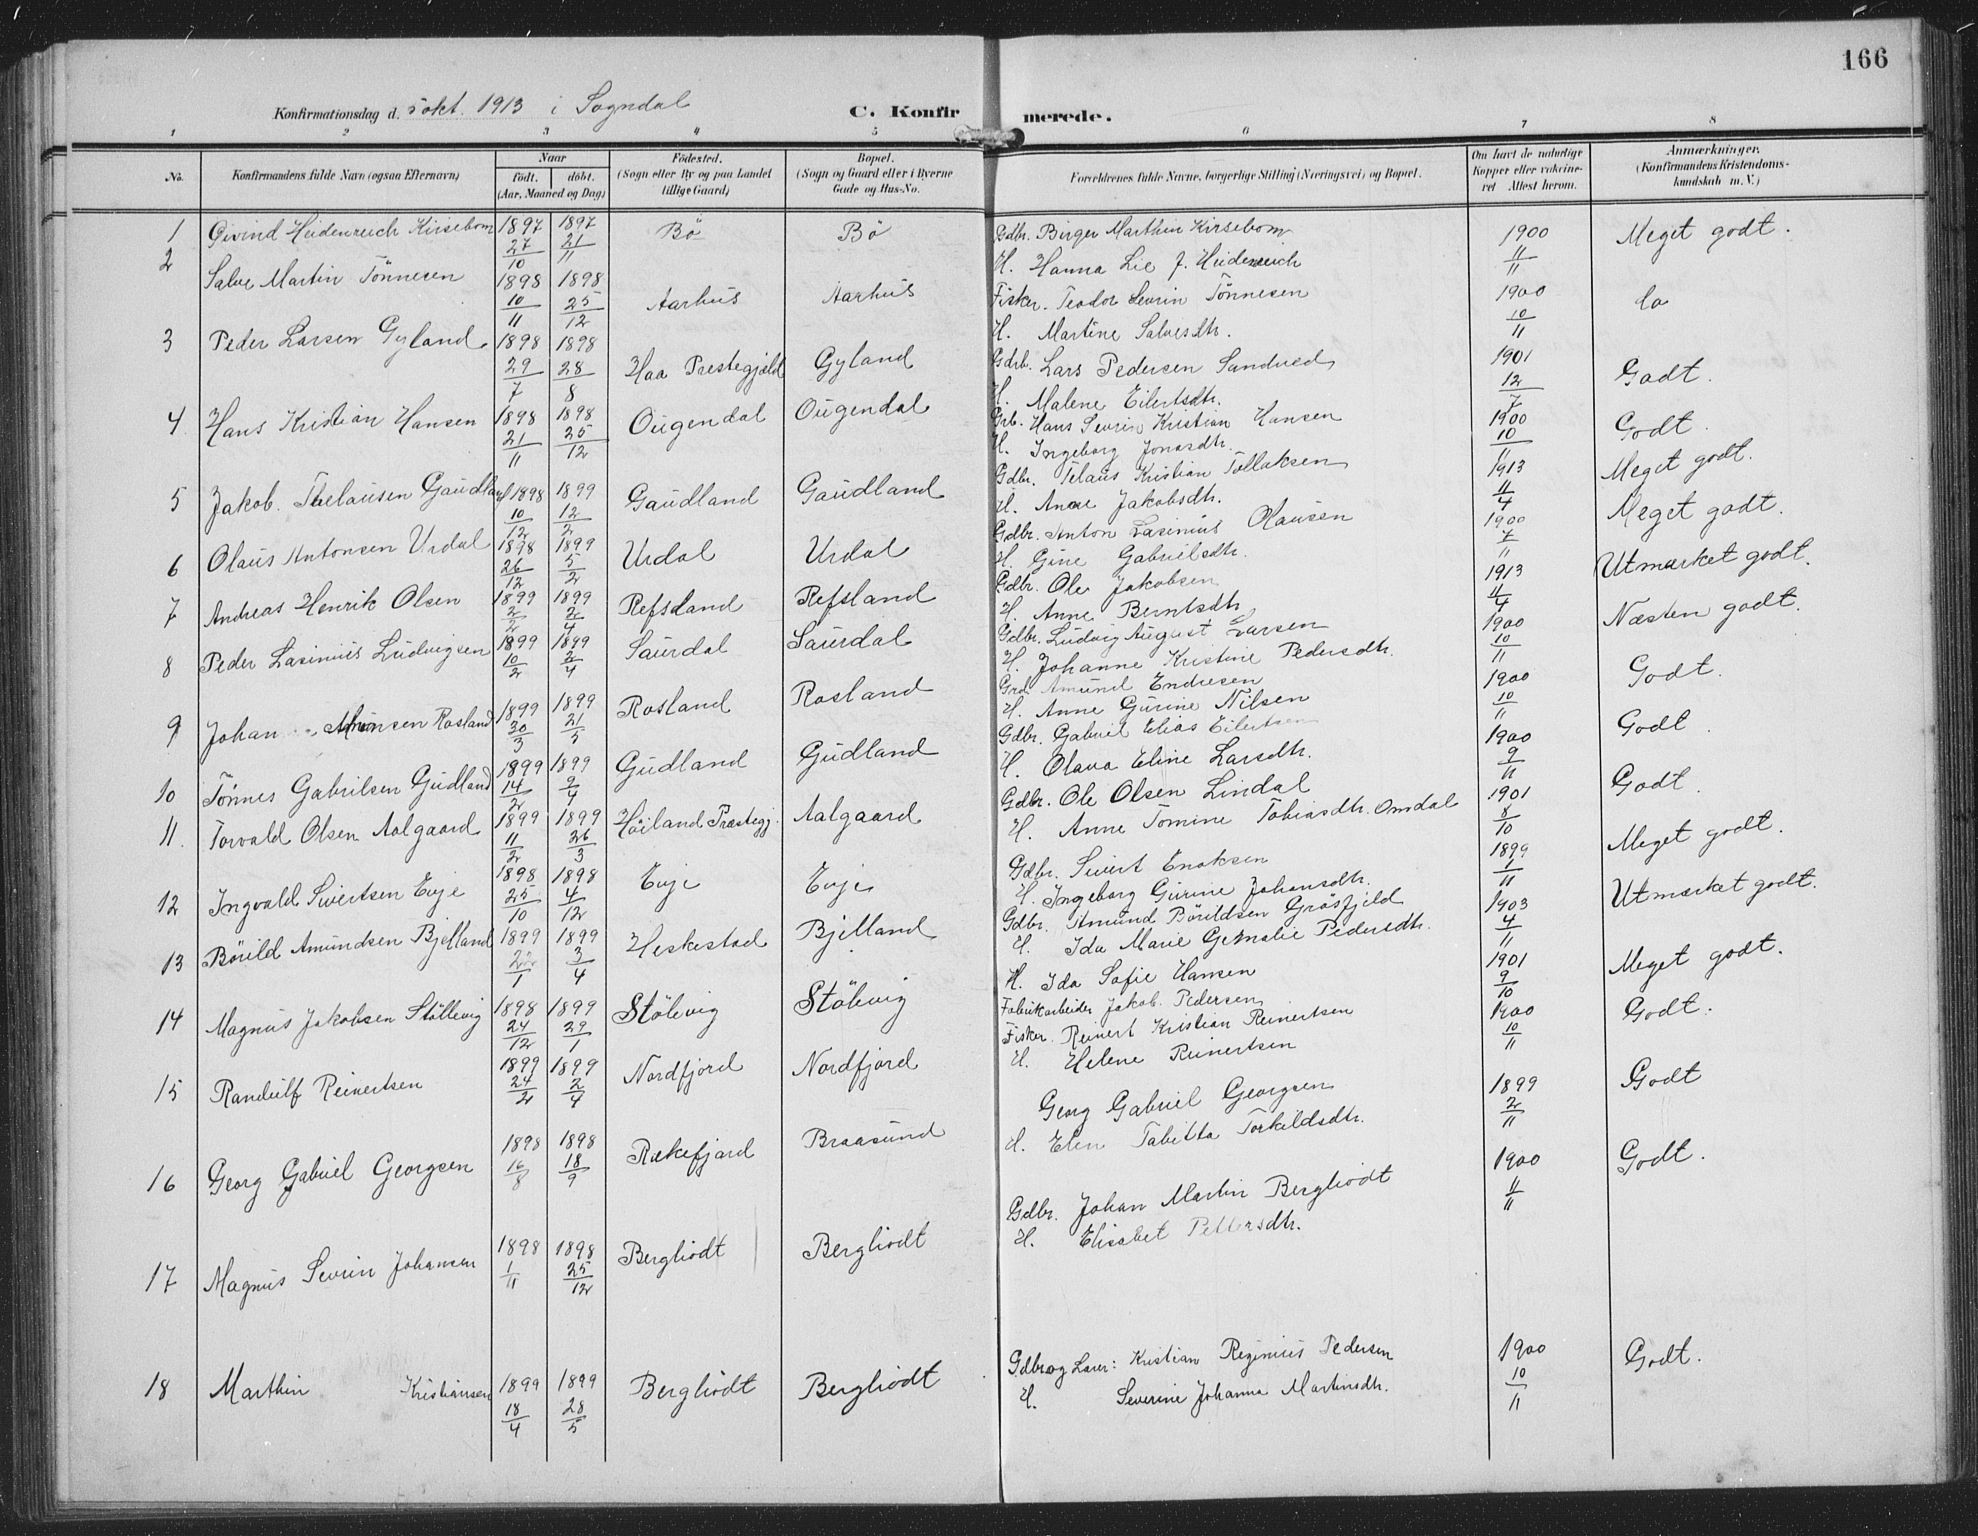 166
Konfirmationsdag d. 5 okt. 1913 i Sogndal
C. Konfirmerede.
1 2 3 4 5 6 7 8
No. Konfirmandens fulde Navn (ogsaa Efternavn) Naar født. døbt. (Aar, Maaned og Dag) Fødested. (Sogn eller By og paa Landet tillige Gaard) Bopæl. (Sogn og Gaard eller i Byerne Gade og Hus-No. Forældrenes fulde Navne, borgerlige Stilling (Næringsvei) og Bopæl. Om havt de naturlige Kopper eller vakcineret Attest herom. Anmærkninger. (Konfirmandens Kristendomskundskab m. V.)
1 Øivind Heidenreich Kirsebom 1897 27/10 1897 21/11 Bö Bö Gdbr. Birger Marthin Kirsebom 1900 11/11 Meget godt.
H. Hanna Lie f. Heidenreich
2 Salve Martin Tönnesen 1898 10/11 1898 25/12 Aarhus Aarhus Fisker. Teodor Sevrin Tönnesen 1900 10/11 do
H. Martine Salvesdtr.
3 Peder Larsen Gyland 1898 29/7 1898 28/8 Haa Prestegjæld Gyland Gdrb. Lars Pedersen Sandved 1901 12/7 Godt.
H. Malene Eilertsdtr.
4 Hans Kristian Hansen 1898 21/11 1898 25/12 Ougendal Ougendal Grb. Hans Sevrin Kristian Hansen 1900 10/11 Godt.
H. Ingeborg Jonasdtr.
5 Jakob. Thelausen Gaudland 1898 10/12 1899 12/2 Gaudland Gaudland Gdbr. Telaus Kristian Tollaksen 1913 11/4 Meget godt.
H. Anne Jakobsdtr.
6 Olaus Antonsen Urdal 1898 26/12 1899 5/2 Urdal Urdal Gdbr. Anton Lasinius Olausen 1900 7/11 Meget godt.
H. Gine Gabrielsdtr.
7 Andreas Henrik Olsen 1899 2/2 1899 2/4 Refsland Refsland Gdbr. Ole Jakobsen 1913 11/4 Utmærket godt.
H. Anne Berntsdtr
8 Peder Lasinius Ludvigsen 1899 10/2 1899 2/4 Saurdal Saurdal Gdbr. Ludvig August Larsen 1900 10/11 Næsten godt.
H. Johanne Kristine Pedersdtr.
9 Johan Amunsen Rosland 1899 30/3 1899 21/5 Rosland Rosland Grd. Amund Endresen 1900 10/11 Godt.
H. Anne Gurine Nilsen
10 Tönnes Gabrilsen Gudland 1899 14/2 1899 2/4 Gudland Gudland Gdbr. Gabriel Elias Eilertsen 1900 9/11 Godt.
H. Olava Eline Larsdtr.
11. Torvald Olsen Aalgaard 1899 11/2 1899 26/3 Höiland Præstegj. Aalgaard Gdbr. Ole Olsen Lindal 1901 8/10 Godt.
H. Anne Tomine Tobiasdtr. Omdal
12 Ingvald Sivertsen Evje 1898 25/10 1898 4/12 Evje Evje Gdbr. Sivert Enoksen 1899 1/11 Meget godt.
H. Ingeborg Gurine Johansdtr.
13 Börild Amundsen Bjelland 1899 22/1 1899 3/4 Heskestad Bjelland Gdbr. Amund Börildsen Grösfjeld 1903 4/11 Utmærket godt.
H. Ida Marie Pedersdtr.
14 Magnus Jakobsen Stöllevig 1898 24/12 1899 29/1 Stölevig Stölevig H. Ida Sofie Hansen 1901 9/10 Meget godt.
Fabrikarbeider Jakob Pedersen
15 Randulf Reinertsen 1899 24/2 1899 2/4 Nordfjord Nordfjord Fisker. Reinert Kristian Reinertsen 1900 10/11 Godt.
H. Helene Reinertsen
16 Georg Gabriel Georgsen 1898 16/8 1898 18/9 Rækefjord Braasund Georg Gabriel Georgsen 1899 2/11 Godt
H. Elen Tabitta Torkildsdtr.
17 Magnus Sevrin Johansen 1898 1/11 1898 25/12 Bergliodt Bergliodt Gdbr. Johan Martin Bergliodt 1900 11/11 Godt.
H. Elisabet Pettersdtr.
18 Marthin Kristiansen 1899 18/4 1899 28/5 Bergliodt Bergliodt Gdbr og Lærer: Kristian Reginius Pedersen 1900 10/11 Godt.
H. Severine Johanna Martinsdtr.